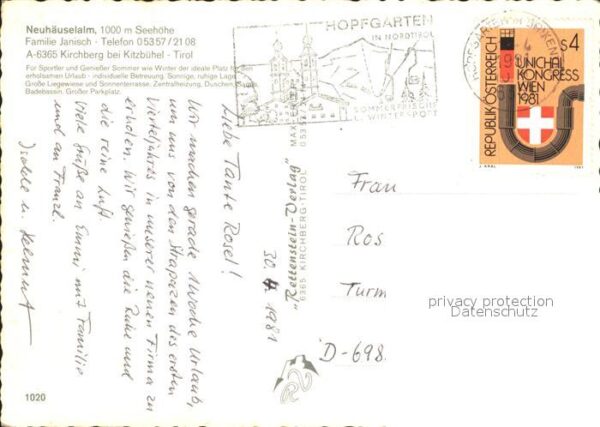 Neuhäuselalm, 1000 m Seehöhe
Familie Janisch · Telefon 0 53 57 / 21 08
A-6365 Kirchberg bei Kitzbühel · Tirol
Für Sportler und Genießer Sommer wie Winter der ideale Platz für
erholsamen Urlaub - individuelle Betreuung. Sonnige, ruhige Lage.
Große Liegewiese und Sonnenterrasse. Zentralheizung, Duschen,
Badebassin. Großer Parkplatz.
HOPFGARTEN
IN NORDTIROL
SOMMERFRISCHE
WINTERSPORT
REPUBLIK ÖSTERREICH
S4
UNICHAL
KONGRESS
WIEN
1981
30.4.1981
Liebe Tante Rosel!
Wir machen gerade 1 Woche Urlaub,
um uns von den Strapazen des ersten
Vierteljahres in unserer neuen Firma zu
erholen. Wir genießen die Ruhe und
die reine Luft.
Viele Grüße an Emmi mit Familie
und an Franzl.
Helmut
"Rettenstein-Verlag"
6365 KIRCHBERG-TIROL
Frau
Ros
Turm
D-698
privacy protection
Datenschutz
1020